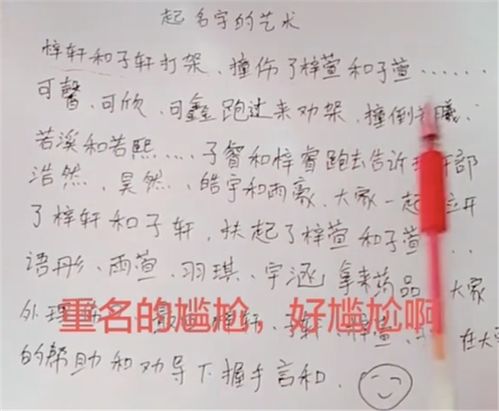 起名字的艺术
梓轩和子轩打架、撞伤了梓萱和子萱……
可馨、可欣、可鑫跑过来劝架、撞倒 曦、
若溪和若熙……子睿和梓睿跑去告诉 部
浩然、昊然、皓宇和雨 、大家一起 开
了梓轩和子轩、扶起了梓萱和子萱
语彤、雨萱、羽琪、宇涵拿来药品 大家
外理 在大
重名的尴尬，好尴尬啊
的帮助和劝导下握手言和、